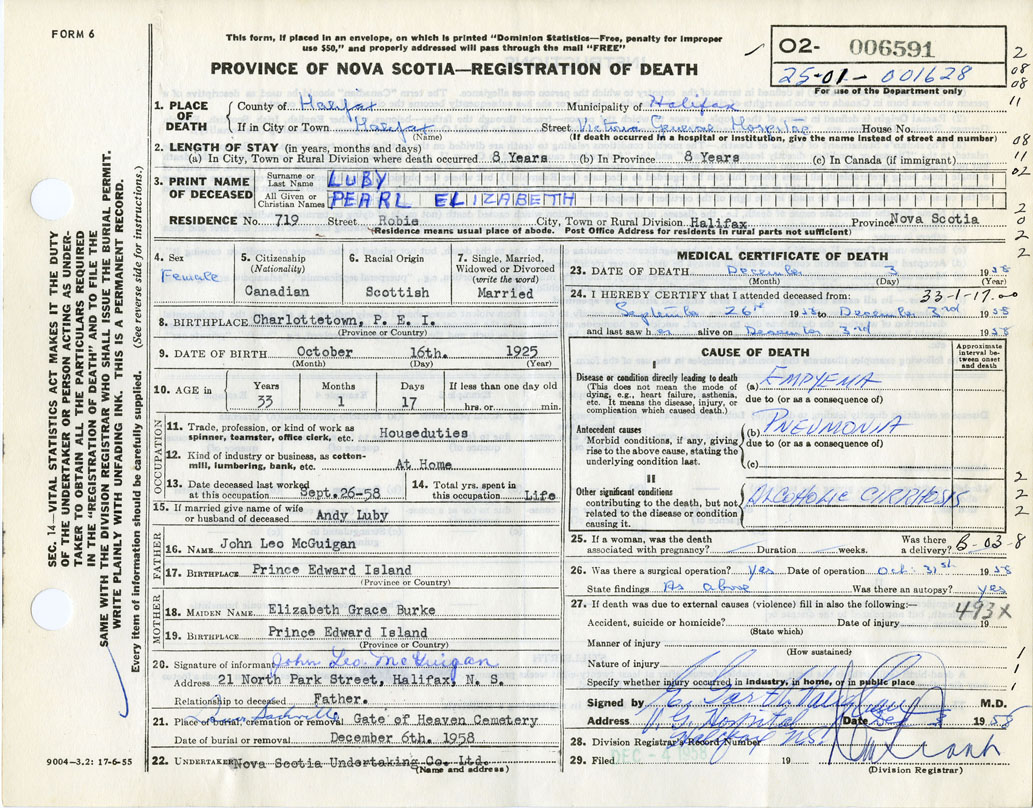 FORM 6
This form, if placed in an envelope, on which is printed "Dominion Statistics—Free, penalty for improper
use $50," and properly addressed will pass through the mail "FREE"
PROVINCE OF NOVA SCOTIA—REGISTRATION OF DEATH
02- 006591
25-01-001628
For use of the Department only
SEC. 14—VITAL STATISTICS ACT MAKES IT THE DUTY
OF THE UNDERTAKER OR PERSON ACTING AS UNDER-
TAKER TO OBTAIN ALL THE PARTICULARS REQUIRED
IN THE "REGISTRATION OF DEATH" AND TO FILE THE
SAME WITH THE DIVISION REGISTRAR WHO SHALL ISSUE THE BURIAL PERMIT.
WRITE PLAINLY WITH UNFADING INK. THIS IS A PERMANENT RECORD.
Every item of information should be carefully supplied. (See reverse side for instructions.)
1. PLACE OF DEATH
County of Halifax Municipality of Halifax
If in City or Town Halifax Street Victoria General Hospital House No.
(Name) (If death occurred in a hospital or institution, give the name instead of street and number)
2. LENGTH OF STAY (in years, months and days)
(a) In City, Town or Rural Division where death occurred 8 Years (b) In Province 8 Years (c) In Canada (if immigrant)
3. PRINT NAME OF DECEASED
Surname or Last Name LUBY
All Given or Christian Names PEARL ELIZABETH
RESIDENCE No. 719 Street Robie City, Town or Rural Division Halifax Province Nova Scotia
(Residence means usual place of abode. Post Office Address for residents in rural parts not sufficient)
4. Sex
Female
5. Citizenship
(Nationality)
Canadian
6. Racial Origin
Scottish
7. Single, Married,
Widowed or Divorced
(write the word)
Married
8. BIRTHPLACE Charlottetown, P. E. I.
(Province or Country)
9. DATE OF BIRTH October 16th. 1925
(Month) (Day) (Year)
10. AGE in
Years Months Days If less than one day old
33 1 17 hrs. or min.
OCCUPATION
11. Trade, profession, or kind of work as
spinner, teamster, office clerk, etc. Houseduties
12. Kind of industry or business, as cotton-
mill, lumbering, bank, etc. At Home
13. Date deceased last worked
at this occupation Sept.26-58
14. Total yrs. spent in
this occupation Life
15. If married give name of wife
or husband of deceased Andy Luby
FATHER
16. NAME John Leo McGuigan
17. BIRTHPLACE Prince Edward Island
(Province or Country)
MOTHER
18. MAIDEN NAME Elizabeth Grace Burke
19. BIRTHPLACE Prince Edward Island
(Province or Country)
20. Signature of informant John Leo McGuigan
Address 21 North Park Street, Halifax, N. S.
Relationship to deceased Father.
Sackville
21. Place of burial, cremation or removal Gate of Heaven Cemetery
Date of burial or removal December 6th. 1958
22. UNDERTAKER Nova Scotia Undertaking Co. Ltd.
(Name and address)
9004—3.2: 17-6-55
MEDICAL CERTIFICATE OF DEATH
23. DATE OF DEATH December 3 1958
(Month) (Day)
24. I HEREBY CERTIFY that I attended deceased from: 33-1-17.00
September 26th 1958 to December 3rd 1958
and last saw her alive on December 3rd 1958
CAUSE OF DEATH
Approximate
interval be-
tween onset
and death
I
Disease or condition directly leading to death
(This does not mean the mode of
dying, e.g., heart failure, asthenia,
etc. It means the disease, injury, or
complication which caused death.)
(a) EMPYEMA
due to (or as a consequence of)
Antecedent causes
Morbid conditions, if any, giving
rise to the above cause, stating the
underlying condition last.
(b) PNEUMONIA
due to (or as a consequence of)
(c)
II
Other significant conditions
contributing to the death, but not
related to the disease or condition
causing it.
ALCOHOLIC CIRRHOSIS
25. If a woman, was the death
associated with pregnancy? Duration weeks.
Was there
a delivery? B-03-8
26. Was there a surgical operation? yes Date of operation Oct. 31st 1958
State findings As above Was there an autopsy? yes
27. If death was due to external causes (violence) fill in also the following:—
493X
Accident, suicide or homicide? Date of injury 19
(State which)
Manner of injury
(How sustained)
Nature of injury
Specify whether injury occurred in industry, in home, or in public place
Signed by M.D.
Address V.G. Hospital Date Dec 1958
Halifax N.S.
28. Division Registrar's Record Number
29. Filed DEC - 19
(Division Registrar)
2
08
08
11
08
11
02
2
2
2
2
2
2
2
1
1
1